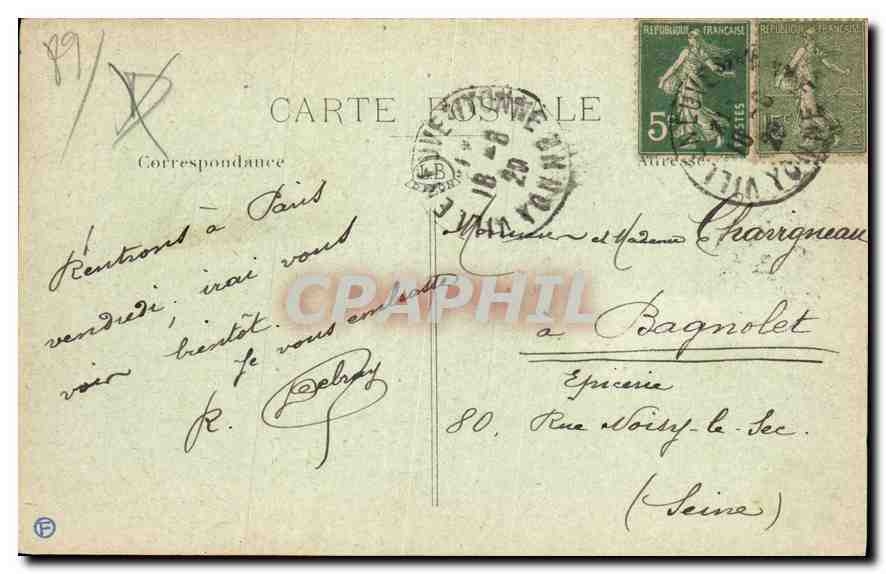 89
REPUBLIQUE FRANÇAISE
REPUBLIQUE FRANÇAISE
5c
POSTES
15c
CARTE POSTALE
Correspondance
Adresse
YONNE
16 -8
20
YONNE
Rentrons à Paris
vendredi, irai vous
voir bientôt.
Je vous embrasse
R. Debray
Monsieur et Madame Chavigneau
à Bagnolet
Epicerie
80, Rue Noisy-le-Sec.
(Seine)
CPAPHIL
F